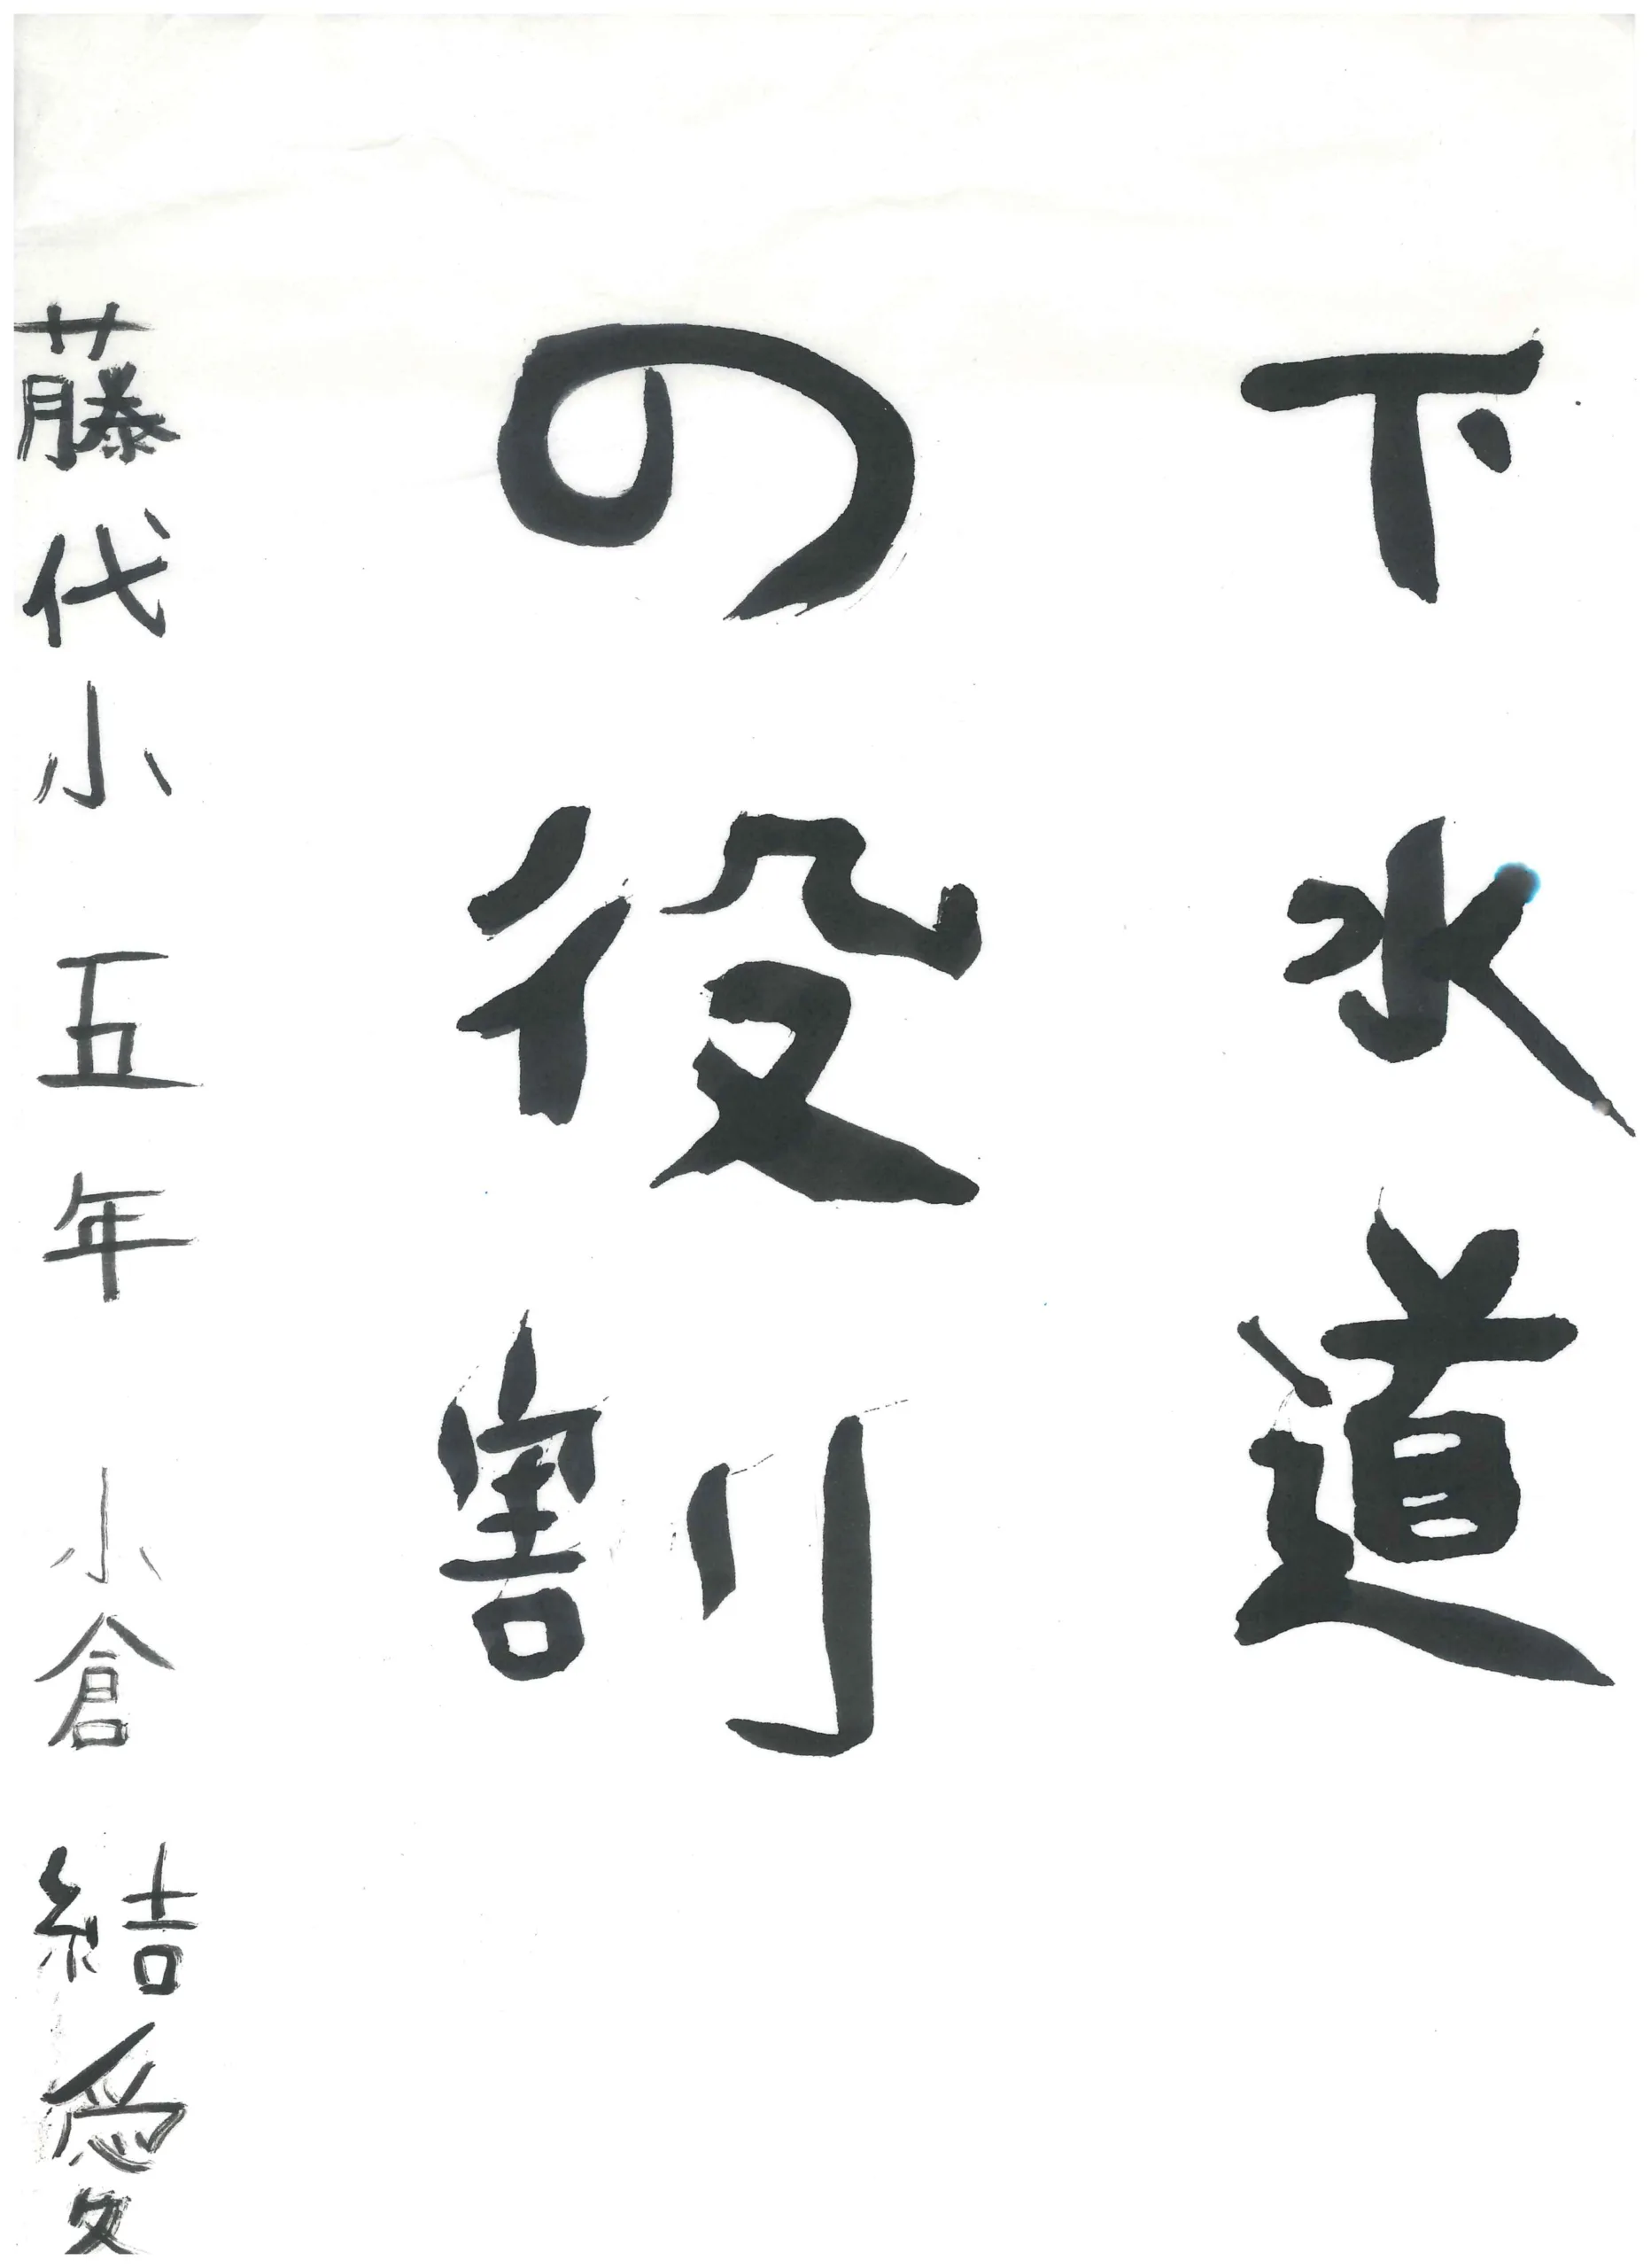 下水道
の役割
藤代小 五年 小倉 結愛